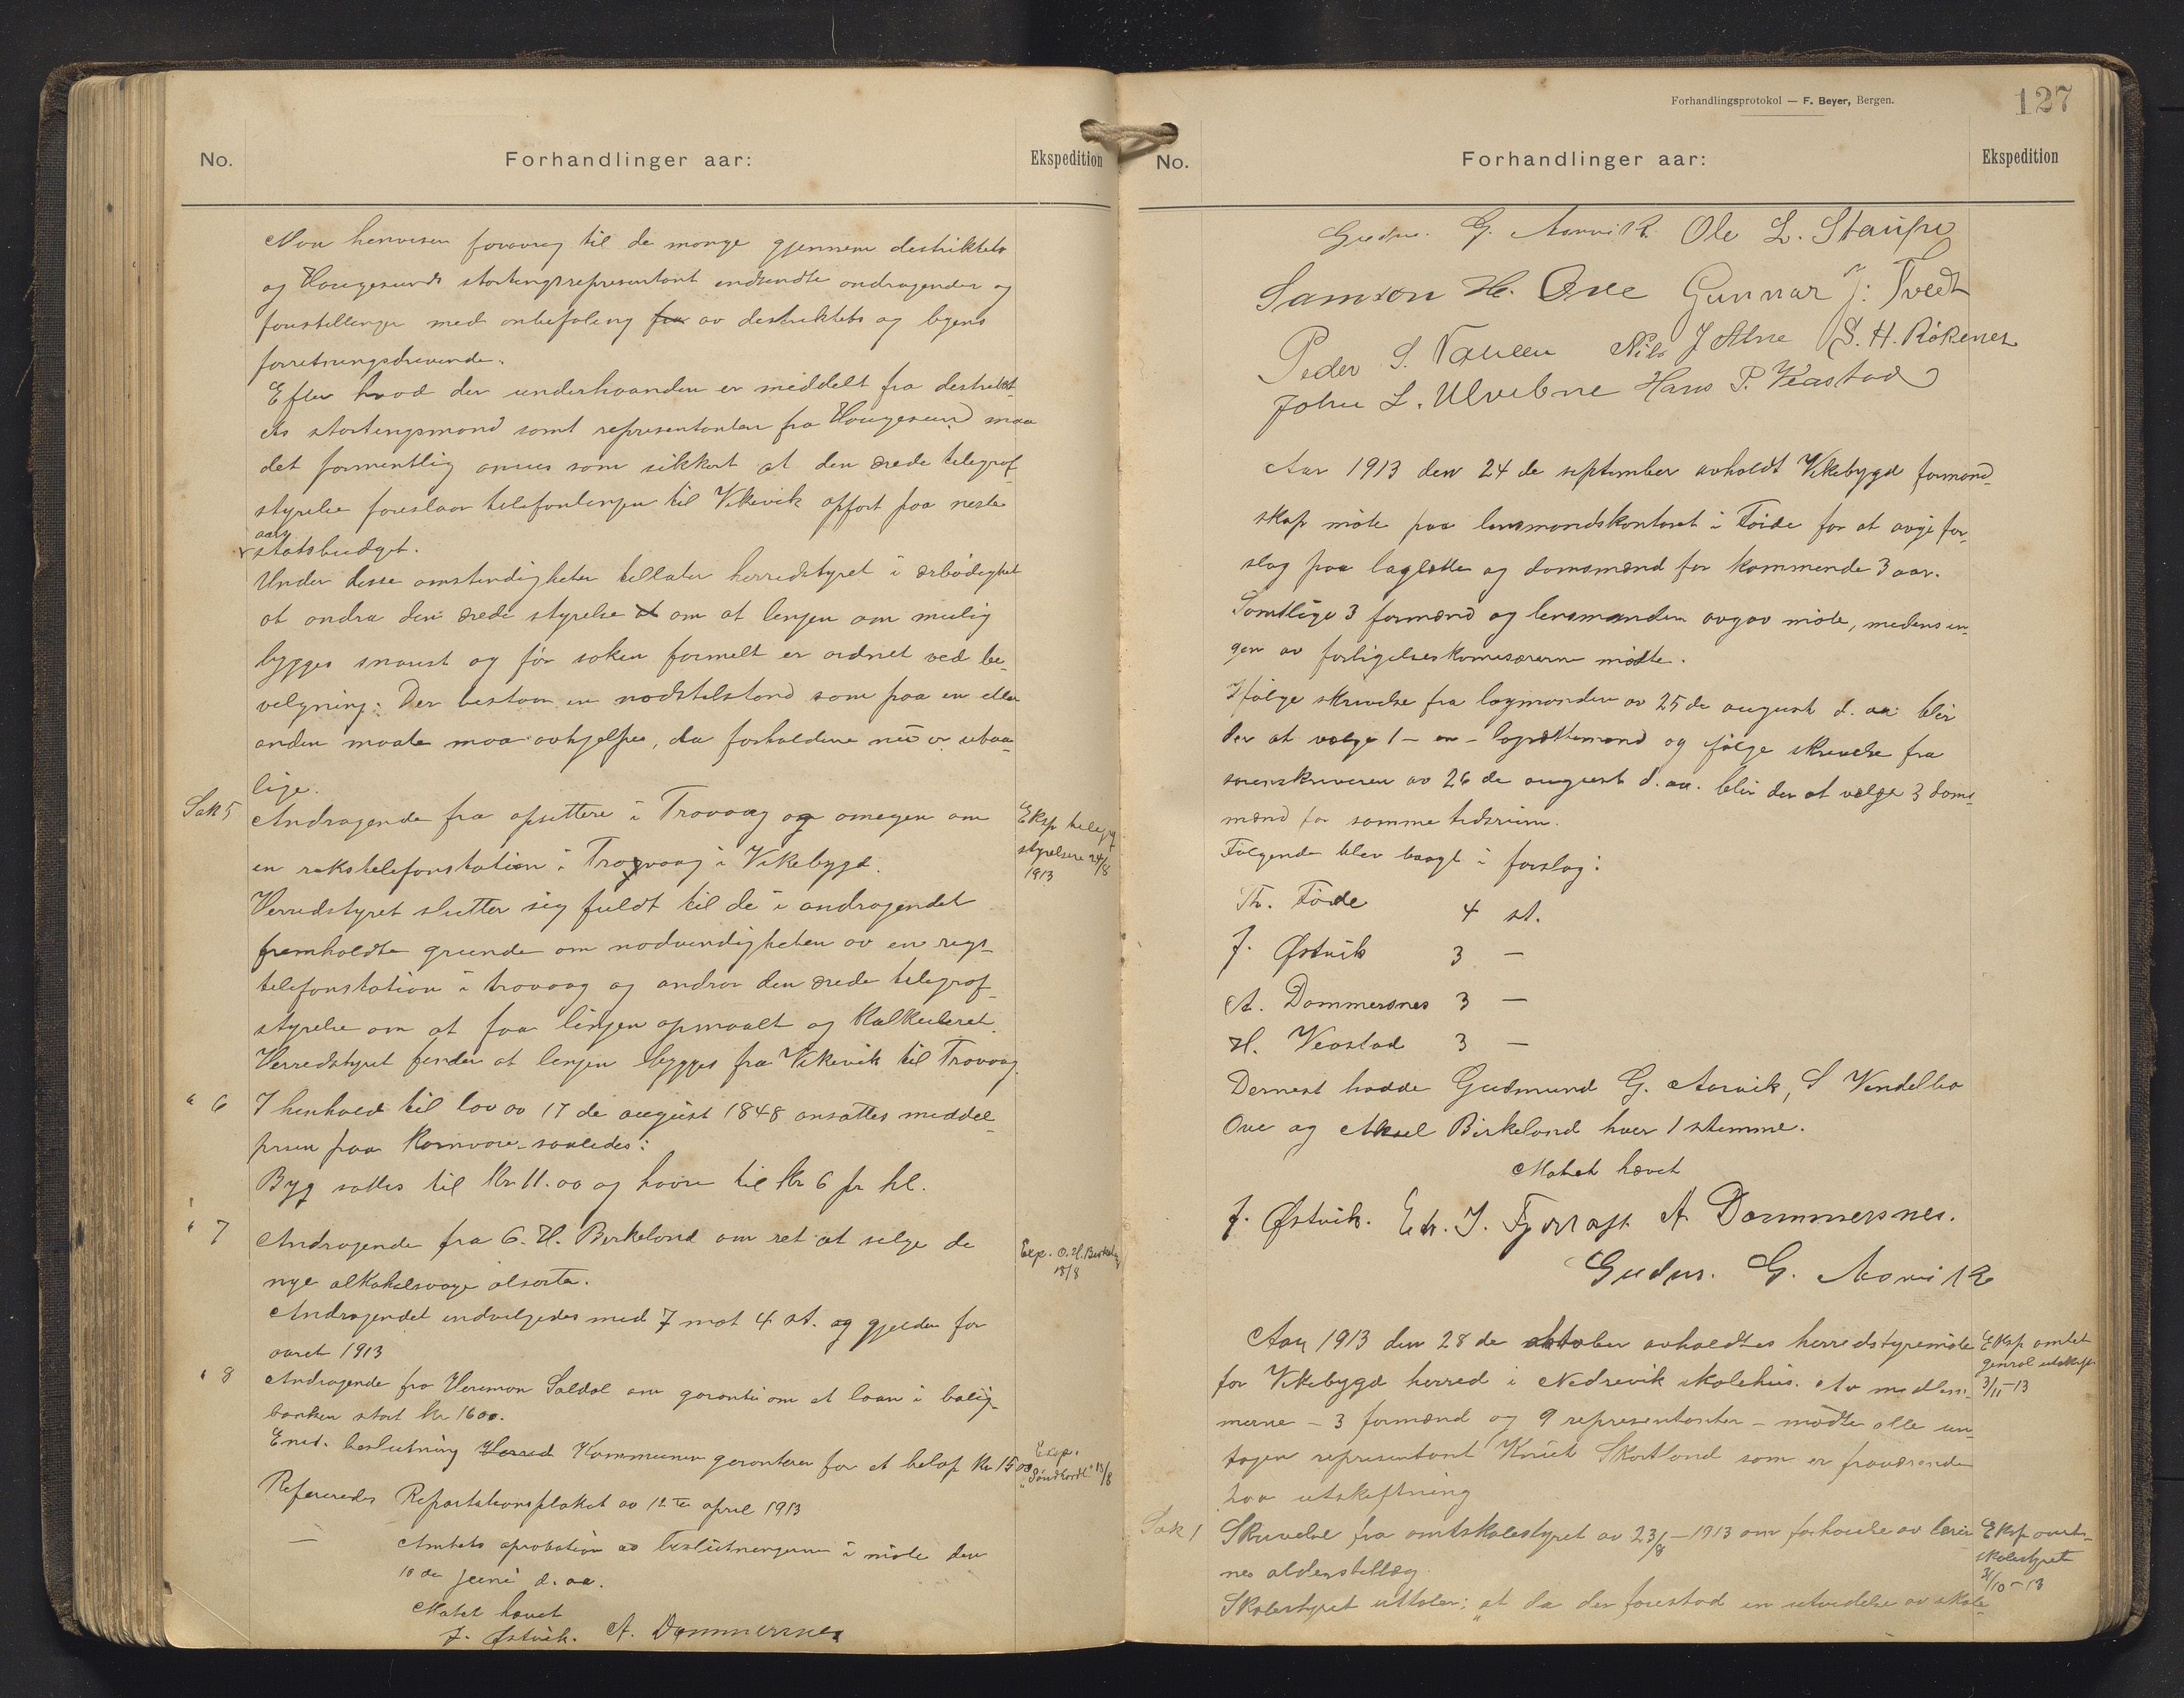 No.
Forhandlinger aar:
Ekspedition
Man henviser forøvrig til de mange gjennem destriktets
og Haugesunds stortingsrepresentant indsendte andragender og
forestillinger med anbefaling fra av destriktets og byens
forretningsdrivende.
Efter hvad der underhaanden er meddelt fra destrikt-
ets stortingsmand samt representanten fra Haugesund maa
det formentlig ansees som sikkert at den ærede telegraf-
styrelse foreslaar telefonlinjen til Vikevik opført paa neste
aars
statsbudget.
Under disse omstendigheter tillater herredstyret i ærbødighet
at andra den ærede styrelse at om at linjen om mulig
bygges snarest og før saken formelt er ordnet ved be-
vilgning. Der bestaar en nødstilstand som paa en eller
anden maate maa avhjelpes, da forholdene nu er utaa-
lige.
Sak 5
Andragende fra opsittere i Trovaag og omegen om
en rikstelefonstation i Trovaag i Vikebygd.
Herredstyret slutter sig fuldt til de i andragendet
fremholdte grunde om nødvendigheten av en rigs-
telefonstation i trovaag og andrar den ærede telegraf-
styrelse om at faa linjen opmaalt og kalkuleret.
Herredstyret finder at linjen bygges fra Vikevik til Trovaag.
Eksp telegr
styrelsen 24/8
1913
" 6
I henhold til lov av 17 de august 1848 ansattes middel-
prisen paa kornvare saaledes:
Byg sattes til Kr 11.00 og havre til Kr 6 pr hl.
" 7
Andragende fra O. H. Birkeland om ret at selge de
nye alkoholsvage ølsorter.
Andragendet indvilgedes med 7 mot 4 st. og gjelder for
aaret 1913
Exp. O. H. Birkeland
13/8
" 8
Andragende fra Herman Saldal om garanti om et laan i bolig-
banken stort kr 1600.
Enst. beslutning Herred Kommunen garanterer for et beløp Kr 1500
Exp.
"Søndhordl." 13/8
Refereredes Repartitionsplakat av 12 te april 1913
— Amtets aprobation av beslutningerne i møte den
10 de juni d. aa.
Møtet hævet
J. Østvik. A. Dommersnes
Forhandlingsprotokol — F. Beyer, Bergen.
127
No.
Forhandlinger aar:
Ekspedition
Gudm. G. Aarvik Ole L. Staupe
Samson H. Øve Gunnar J. Tvedt
Peder S. Nævlen Nils J Alne S. H. Rökenes
John L. Ulvebne Hans P. Veastad
Aar 1913 den 24 de september avholdt Vikebygd formand-
skap møte paa lensmandskontoret i Føide for at avgi for-
slag paa lagrette og domsmænd for kommende 3 aar.
Samtlige 3 formænd og lensmanden avgav møte, medens in-
gen av forligelseskomisærerne mødte.
Ifølge skrivelse fra lagmanden av 25 de august d. aa. blir
der at vælge 1 – en – lagrettemand og følge skrivelse fra
sorenskriveren av 26 de august d. aa. blir der at vælge 3 doms-
mænd for samme tidsrum.
Følgende blev bragt i forslag:
Th. Føide 4 st.
J. Østvik 3 —
A. Dommersnes 3 —
H. Veastad 3 —
Dernest hadde Gudmund G. Aarvik, S Vendelbo
Øve og Aksel Birkeland hver 1 stemme.
Møtet hævet
J. Østvik. A. Dommersnes.
Gudm. G. Aarvik
Aar 1913 den 28 de oktober avholdtes herredstyremøte
for Vikebygd herred i Nedrevik skolehus. Av medlem-
merne – 3 formænd og 9 representanter – mødte alle un-
tagen representant Knut Skartland som er fraværende
paa utskiftning
Eksp amtet
genral utskrift
3/11–13
Sak 1
Skrivelse fra amtskolestyret av 23/8–1913 om forhøielse av lærer-
nes alderstillæg.
Skolestyret uttaler: "at da der forestod en utvidelse av skole-
Eksp amts-
skolestyret
31/10–13